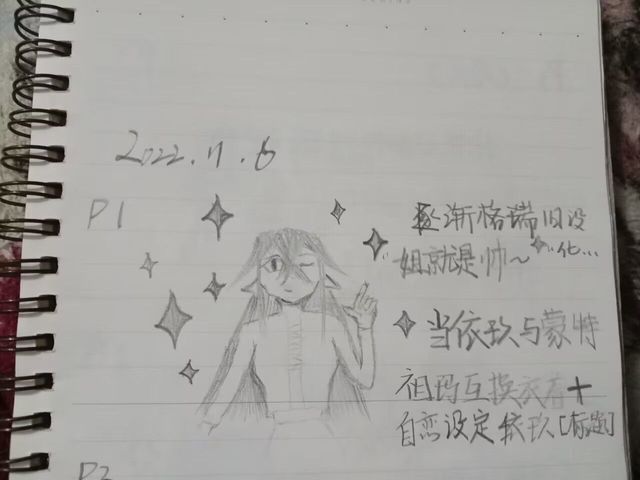 2022.11.6
P1
逐渐格瑞旧设
"姐就是帅~""化...
当依玖与蒙特
祖玛互换衣着+
自恋设定依玖[标题]
P2